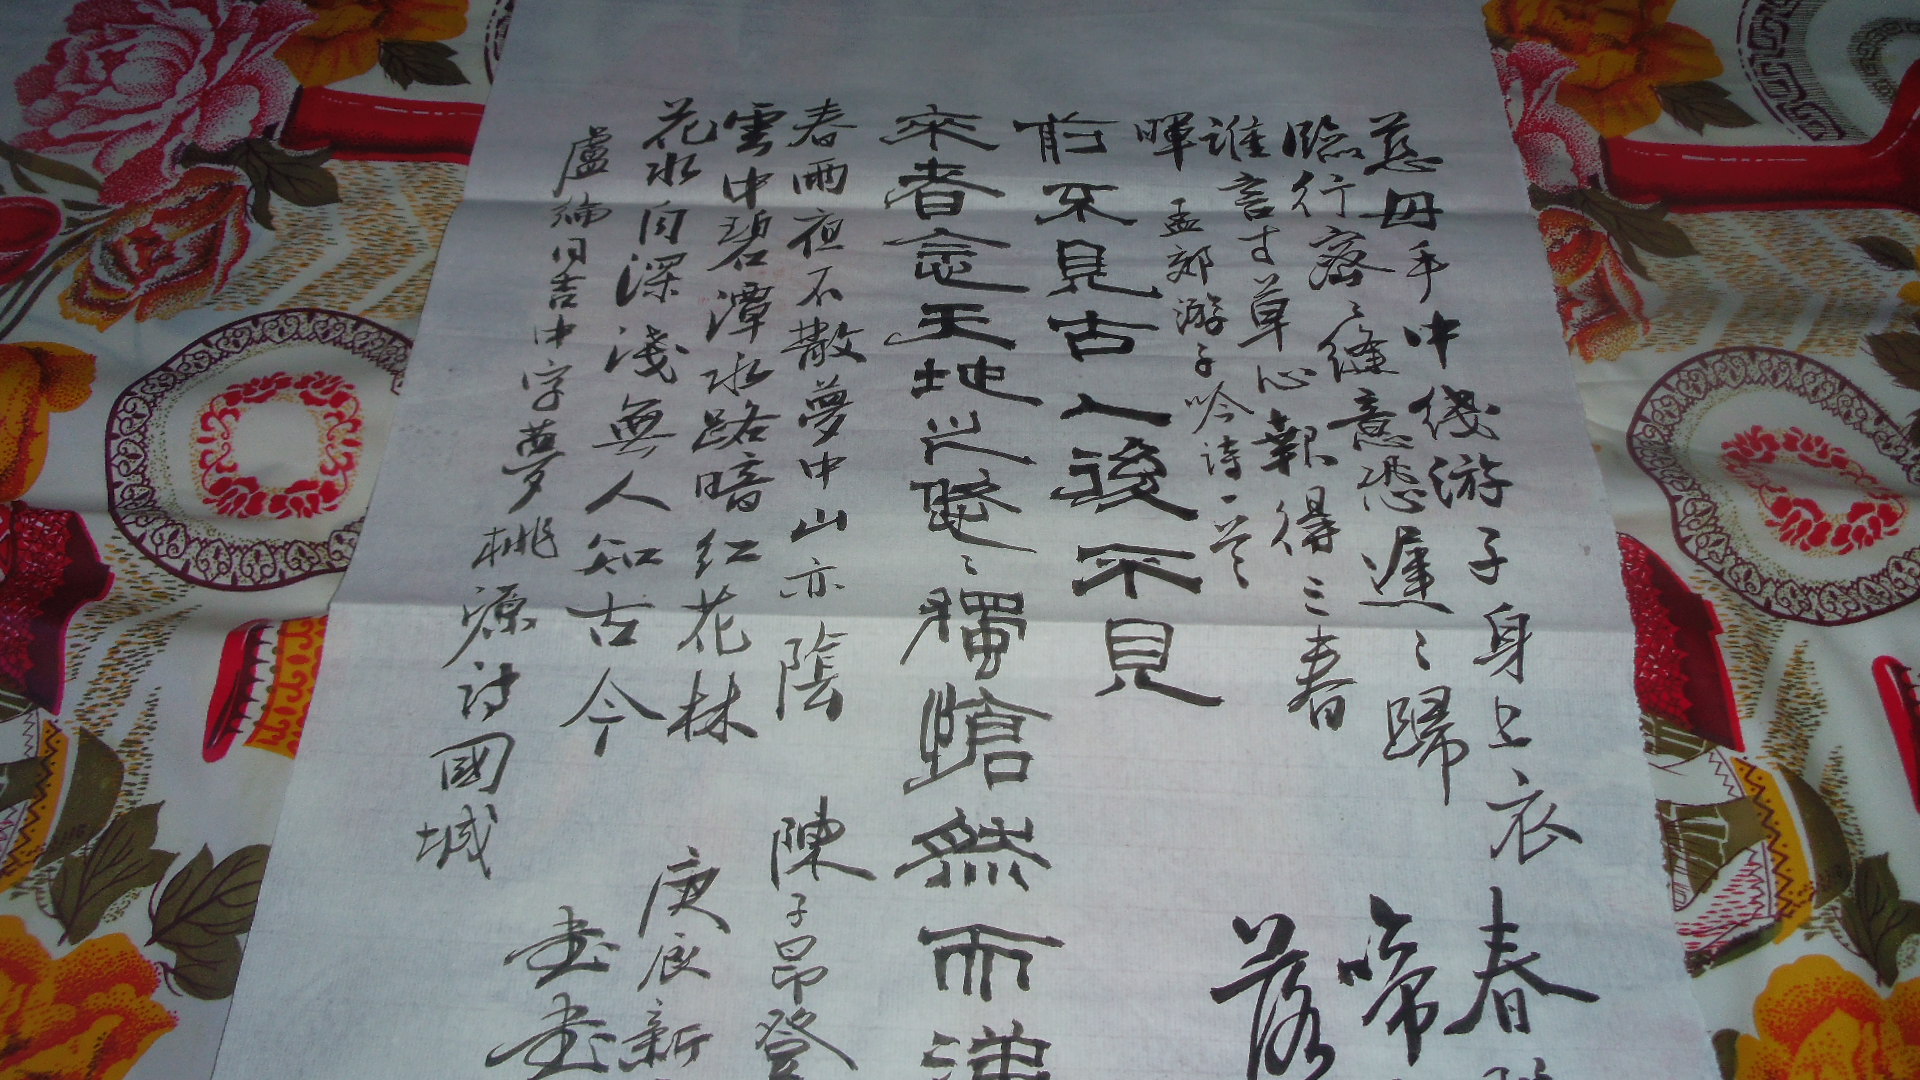 慈母手中线游子身上衣
臨行密〻縫意恐遲〻歸
谁言寸草心報得三春
暉 孟郊游子吟诗一首
前不見古人後不見
來者念天地之悠〻獨愴然而涕
春雨夜不散夢中山亦陰
雲中碧潭水路暗红花林
花水自深淺無人知古今
盧綸同吉中孚夢桃源诗國城
春
啼
落
陳子昂登
庚辰新